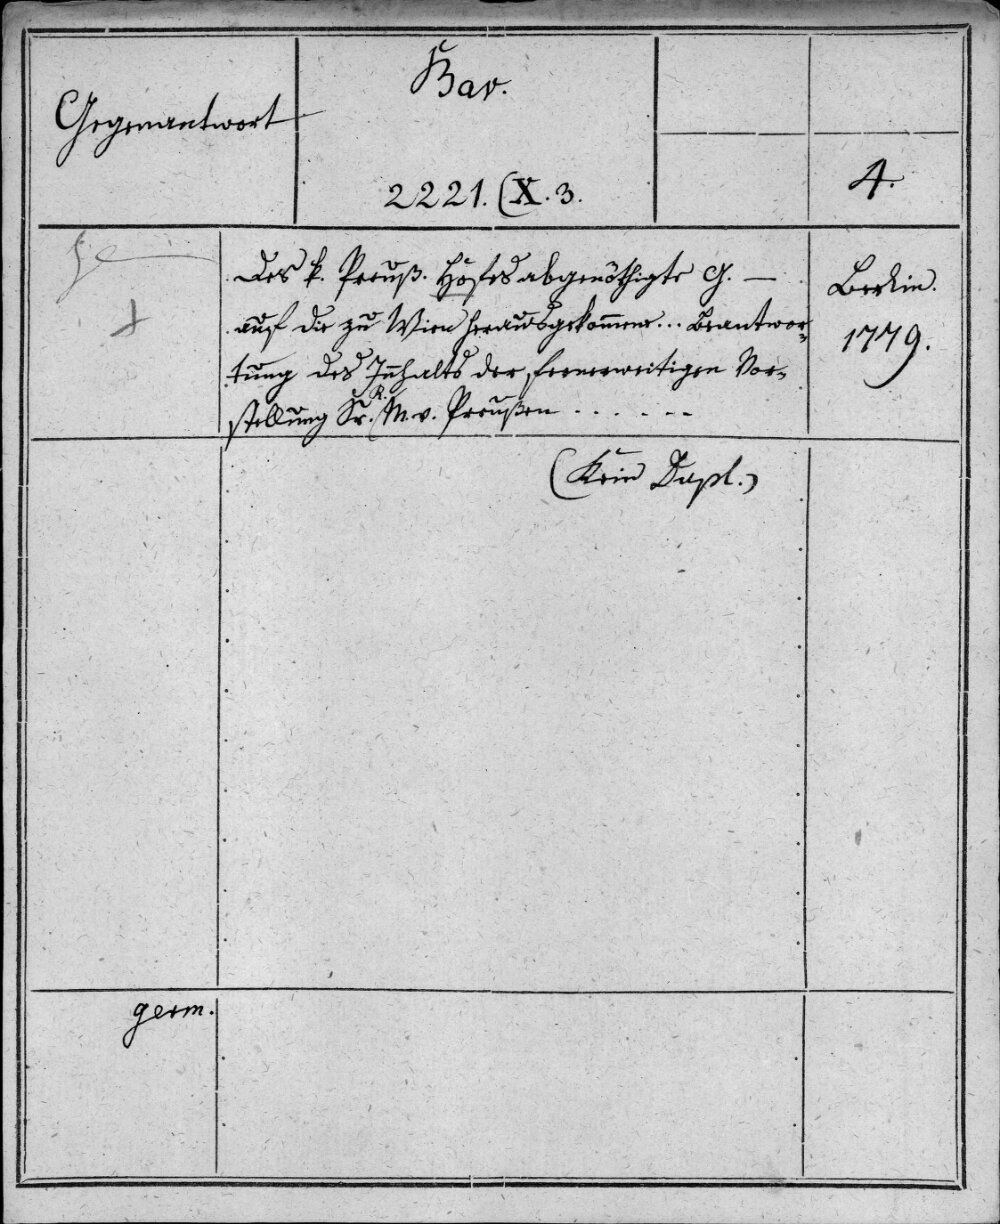 Gegenantwort
Bav.
2221. (X. 3.
4.
Des k. Preuß. Hofes abgenöthigte G. —
auf die zu Wien herausgekommene... Beantwor=
tung des Innhalts der fernerweitigen Vor=
stellung Sr. K. M. v. Preußen . . . . . .
Berlin.
1779.
(Kein Dupl.)
germ.